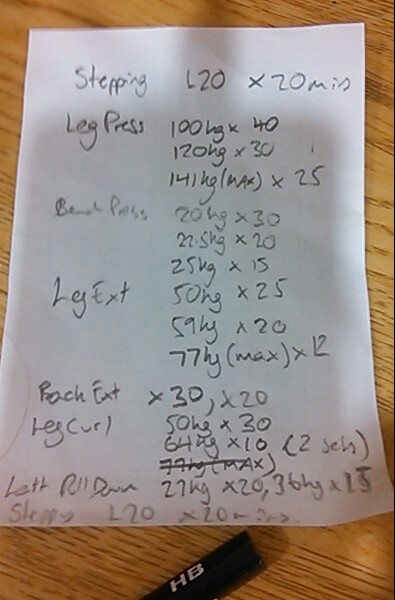 Stepping L20 x 20min
Leg Press 100kg x 40
120kg x 30
141kg (MAX) x 25
Bench Press 20kg x 30
22.5kg x 20
25kg x 15
Leg Ext 50kg x 25
59kg x 20
77kg (max) x 12
Back Ext x 30, x20
Leg Curl 50kg x 30
64kg x 10 (2 sets)
77kg (MAX)
Latt Pull Down 27kg x20, 36kg x 15
Stepping L20 x20mins.
HB